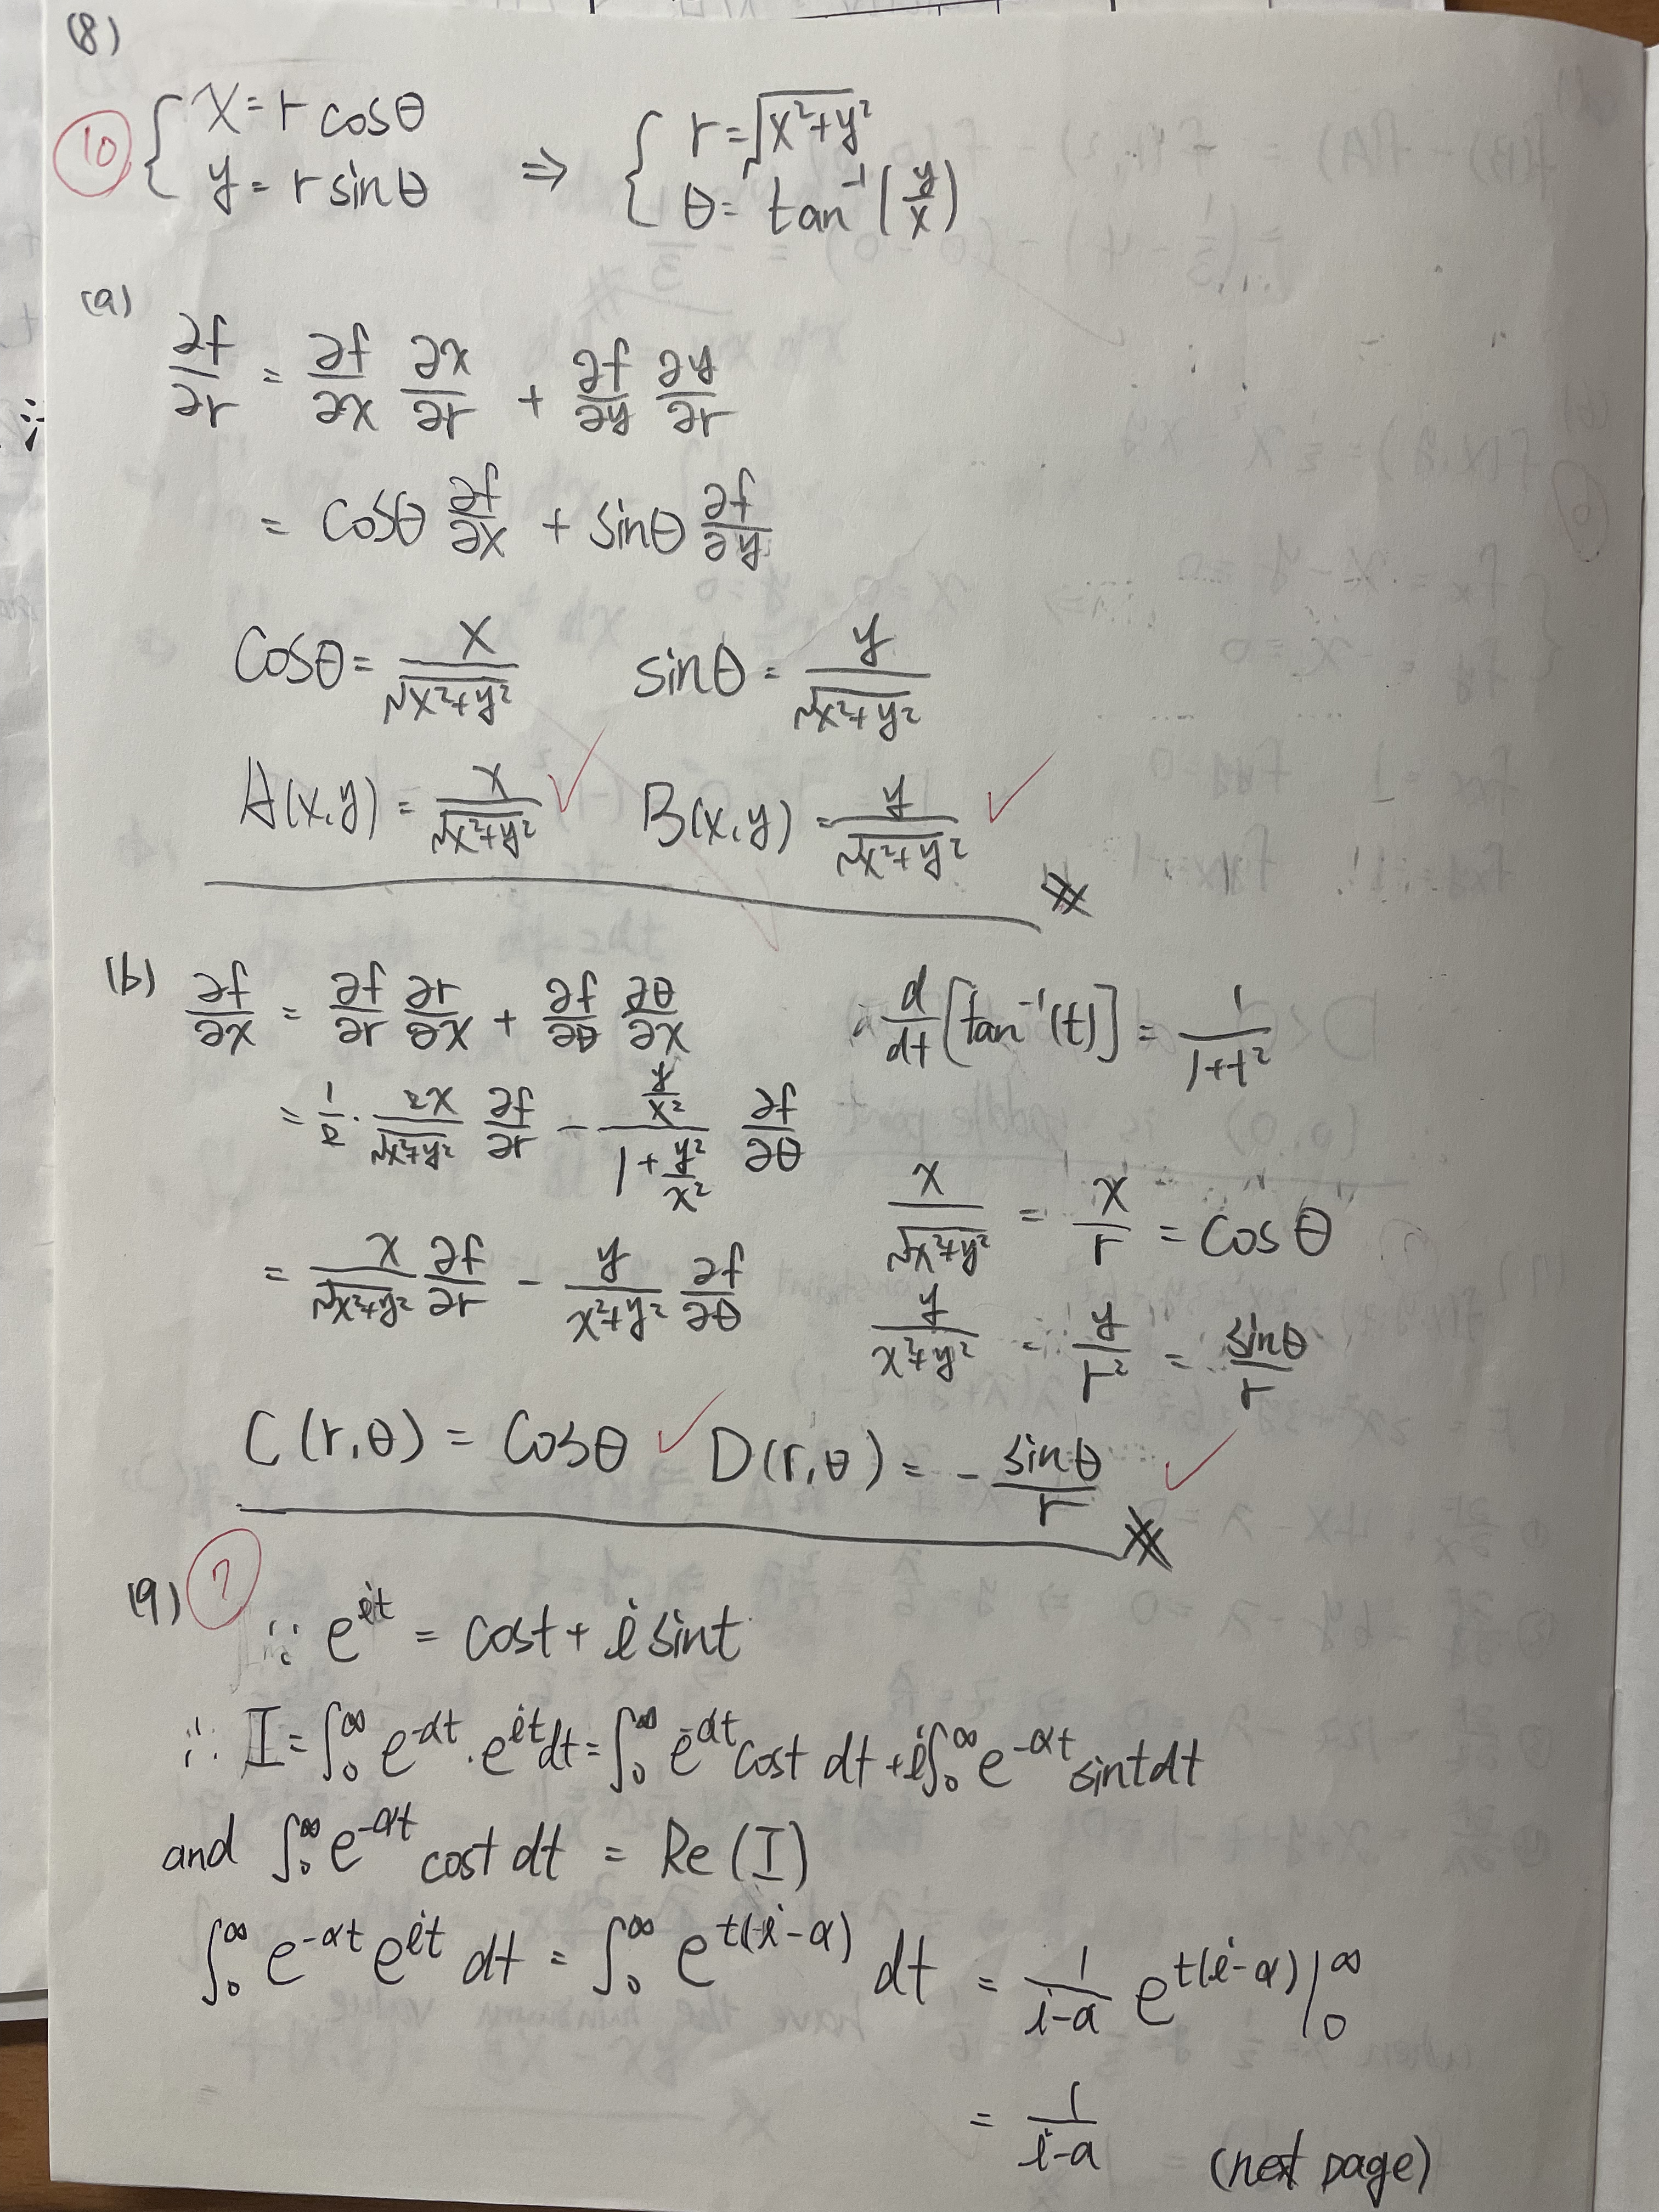 (8)
⑩ { x = r cosθ
y = r sinθ ⇒ { r = √(x²+y²)
θ = tan⁻¹(y/x)
(a)
∂f/∂r = ∂f/∂x ∂x/∂r + ∂f/∂y ∂y/∂r
= cosθ ∂f/∂x + sinθ ∂f/∂y
cosθ = x/√(x²+y²) sinθ = y/√(x²+y²)
A(x,y) = x/√(x²+y²) ✓ B(x,y) = y/√(x²+y²) ✓
(b) ∂f/∂x = ∂f/∂r ∂r/∂x + ∂f/∂θ ∂θ/∂x
d/dt [tan⁻¹(t)] = 1/(1+t²)
= 1/2 · 2x/√(x²+y²) ∂f/∂r − (y/x²)/(1+y²/x²) ∂f/∂θ
= x/√(x²+y²) ∂f/∂r − y/(x²+y²) ∂f/∂θ
x/√(x²+y²) = x/r = cosθ
y/(x²+y²) = y/r² = sinθ/r
C(r,θ) = cosθ ✓ D(r,θ) = − sinθ/r ✓
(9) ⑦
∵ e^{it} = cost + i sint
∴ I = ∫₀^∞ e^{-αt} · e^{it} dt = ∫₀^∞ e^{-αt} cost dt + i∫₀^∞ e^{-αt} sint dt
and ∫₀^∞ e^{-αt} cost dt = Re(I)
∫₀^∞ e^{-αt} e^{it} dt = ∫₀^∞ e^{t(i-α)} dt = 1/(i-a) e^{t(i-α)} |₀^∞
= 1/(i-a) (next page)